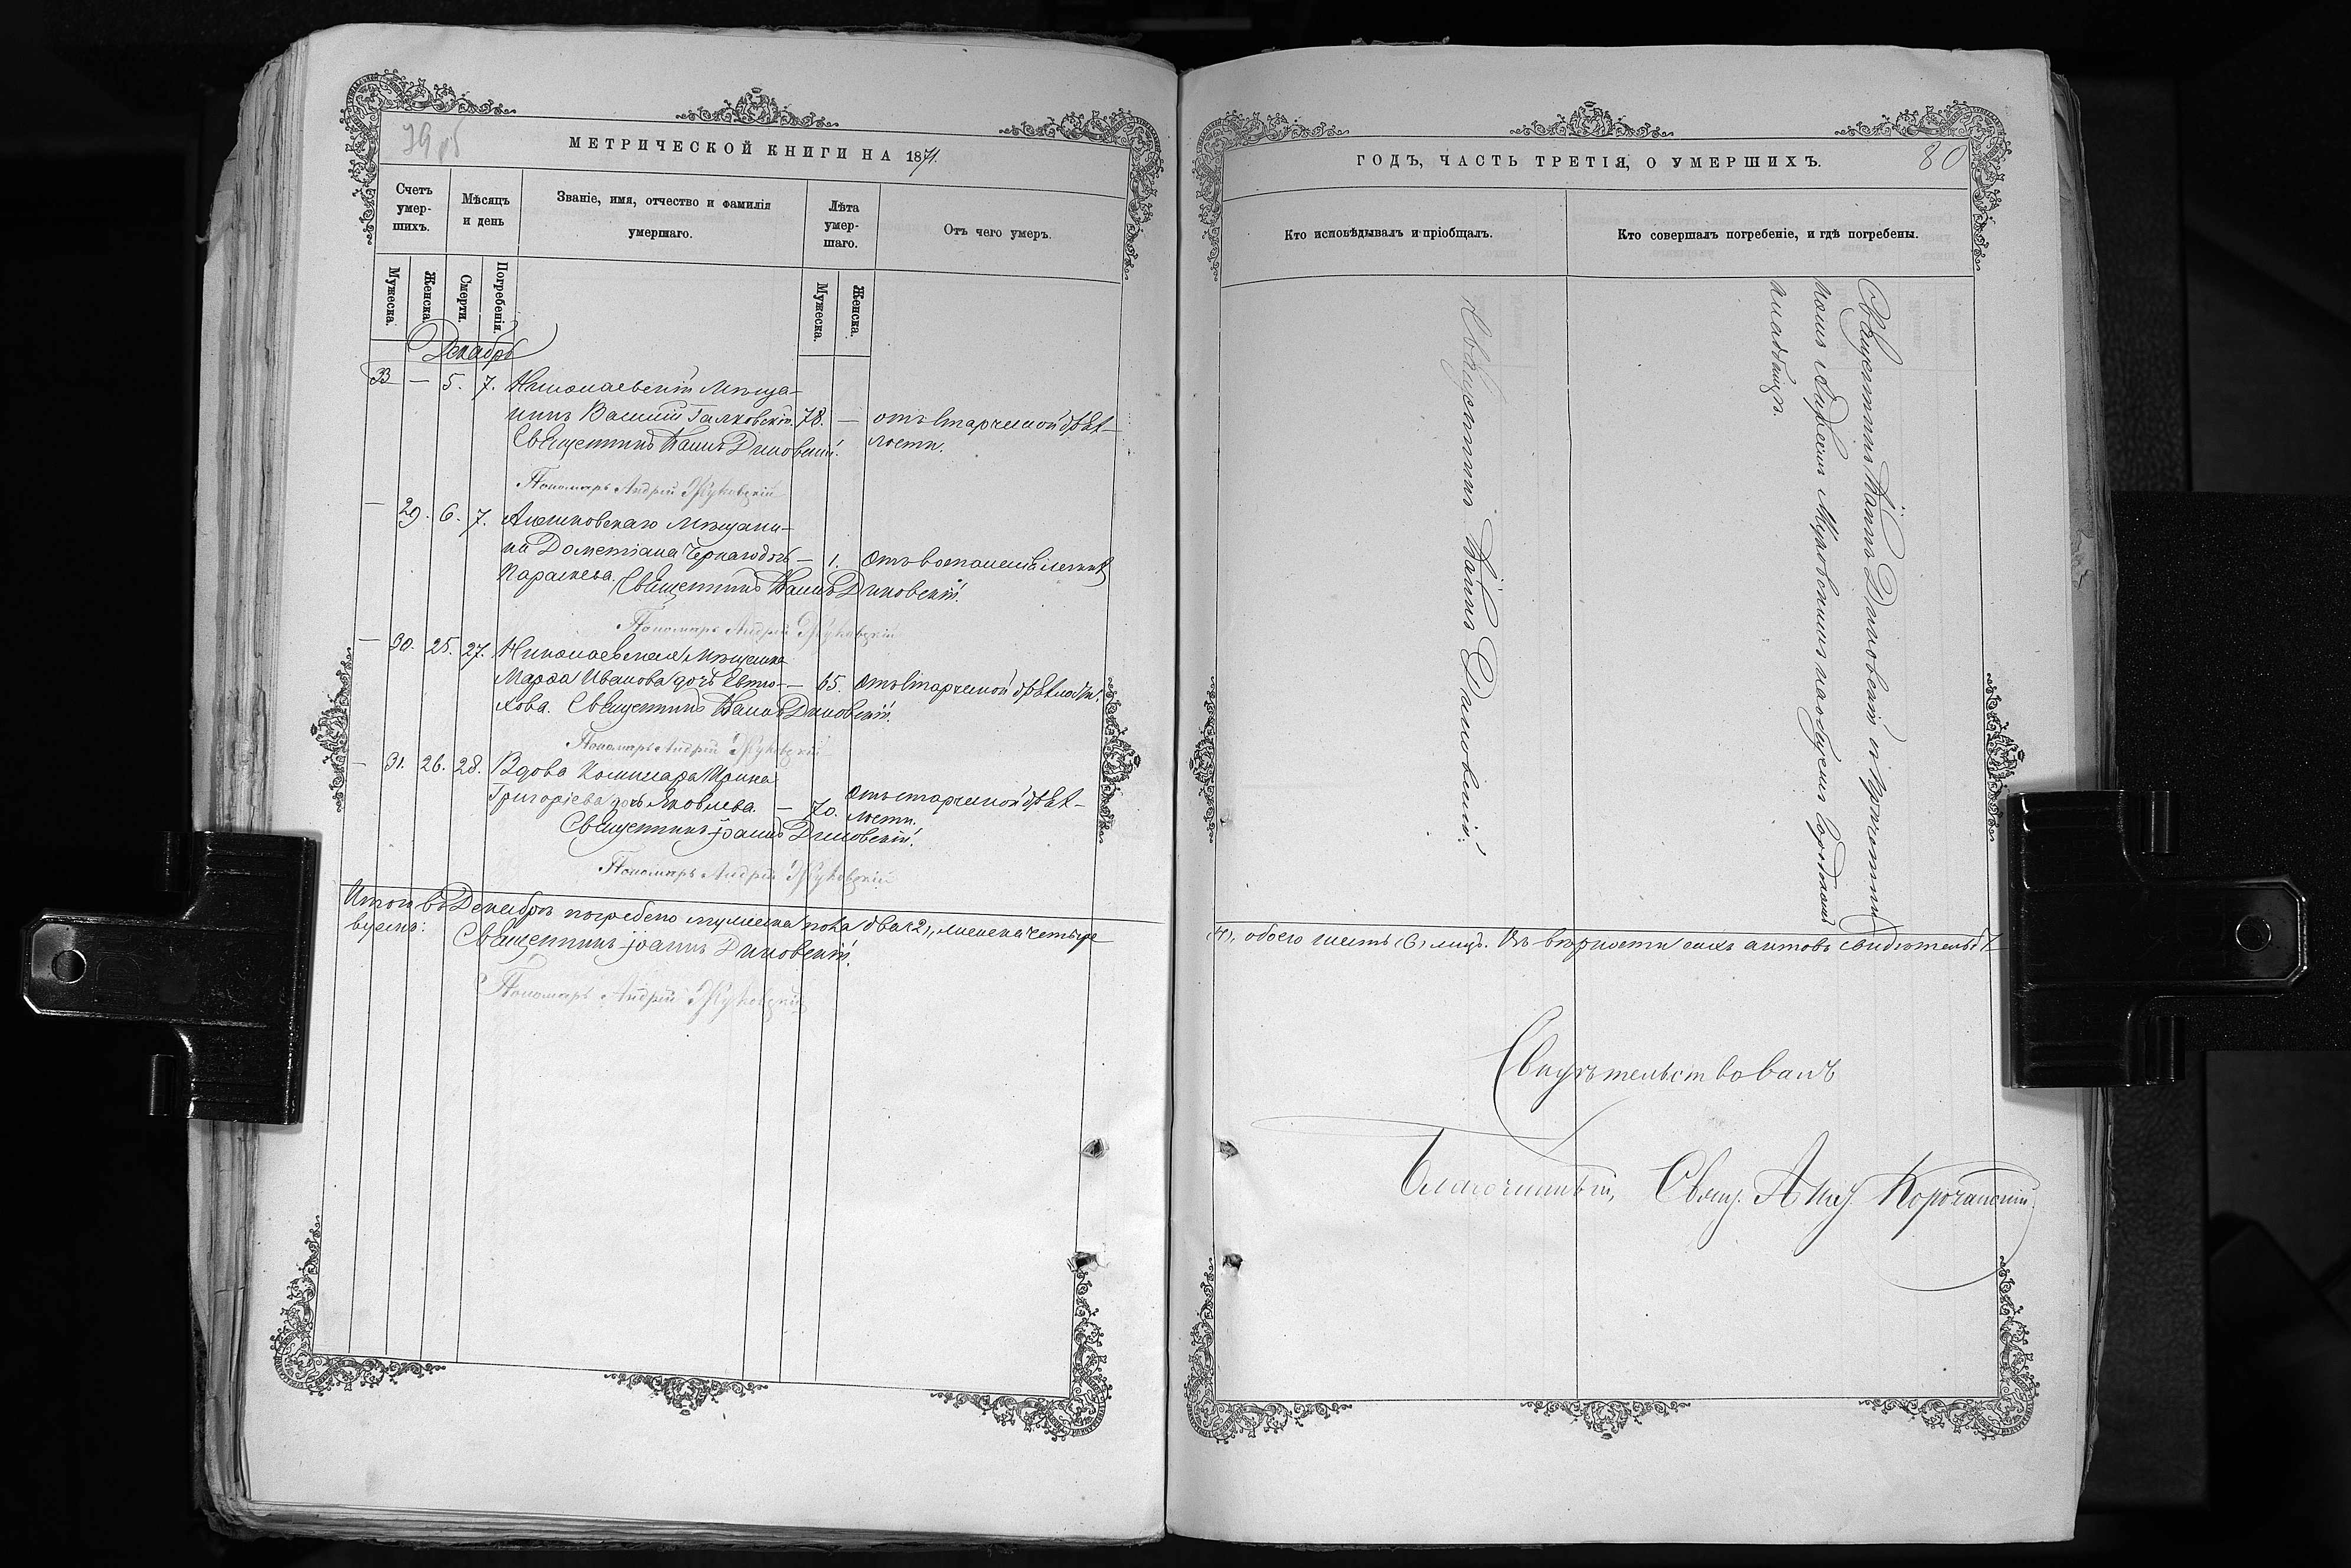 79 об
МЕТРИЧЕСКОЙ КНИГИ НА 1871.
Счетъ умер-шихъ.
Мѣсяцъ и день
Званіе, имя, отчество и фамилія умершаго.
Лѣта умер-шаго.
Отъ чего умеръ.
Мужеска.
Женска.
Смерти.
Погребенія.
Мужеска.
Женска.
Декабрь
33 — 5. 7. Николаевскій Мѣща-
нинъ Василій Галковскій. 78. — отъ старческой дрях-
Священникъ Іоаннъ Диковскій. лости.
Пономарь Андрей Жуковскій
— 29. 6. 7. Мѣщани-
на Дометіана дочь — 1. Отъ воспаленія легкихъ
Параскева. Священникъ Іоаннъ Диковскій.
Пономарь Андрей Жуковскій
— 30. 25. 27. Николаевская Мѣщанка
Марѳа Иванова дочь Евтю- — 65. Отъ старческой дряхлости.
хова. Священникъ Іоаннъ Диковскій.
Пономарь Андрей Жуковскій
— 31. 26. 28. Вдова Ирина
Григоріева дочь Яковлева. — 70. Отъ старческой дрях-
лости.
Священникъ Іоаннъ Диковскій.
Пономарь Андрей Жуковскій
Итого въ Декабрѣ погребено мужеска пола два (2), женска четыре
Священникъ Іоаннъ Диковскій.
Пономарь Андрей Жуковскій
ГОДЪ, ЧАСТЬ ТРЕТІЯ, О УМЕРШИХЪ.
80
Кто исповѣдывалъ и пріобщалъ.
Кто совершалъ погребеніе, и гдѣ погребены.
Священникъ Іоаннъ Диковскій.
Священникъ Іоаннъ Диковскій съ Причетни-
комъ на общемъ
кладбищѣ.
(4), обоего шесть (6) лицъ. Въ вѣрности сихъ актовъ свидѣтельст
Свидѣтельствовалъ
Благочинный, Свящ. Корочанскій.